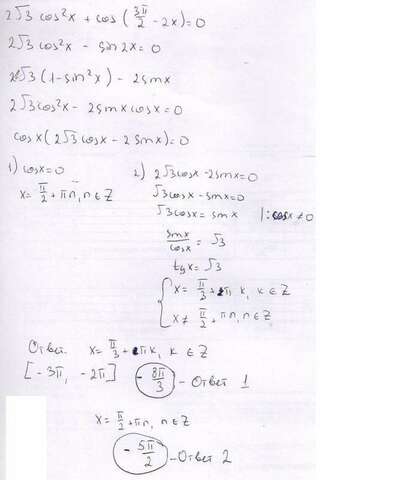 2√3 cos²x + cos(3π/2 - 2x) = 0
2√3 cos²x - sin2x = 0
2√3(1-sin²x) - 2sinx
2√3cos²x - 2sinxcosx = 0
cosx(2√3cosx - 2sinx) = 0
1) cosx = 0
x = π/2 + πn, n ∈ Z
2) 2√3cosx - 2sinx = 0
√3cosx - sinx = 0
√3cosx = sinx |: cosx ≠ 0
sinx/cosx = √3
tgx = √3
{ x = π/3 + πk, k ∈ Z
x ≠ π/2 + πn, n ∈ Z
Ответ. x = π/3 + πk, k ∈ Z
[-3π, -2π] -8π/3 - Ответ 1
x = π/2 + πn, n ∈ Z
-5π/2 - Ответ 2